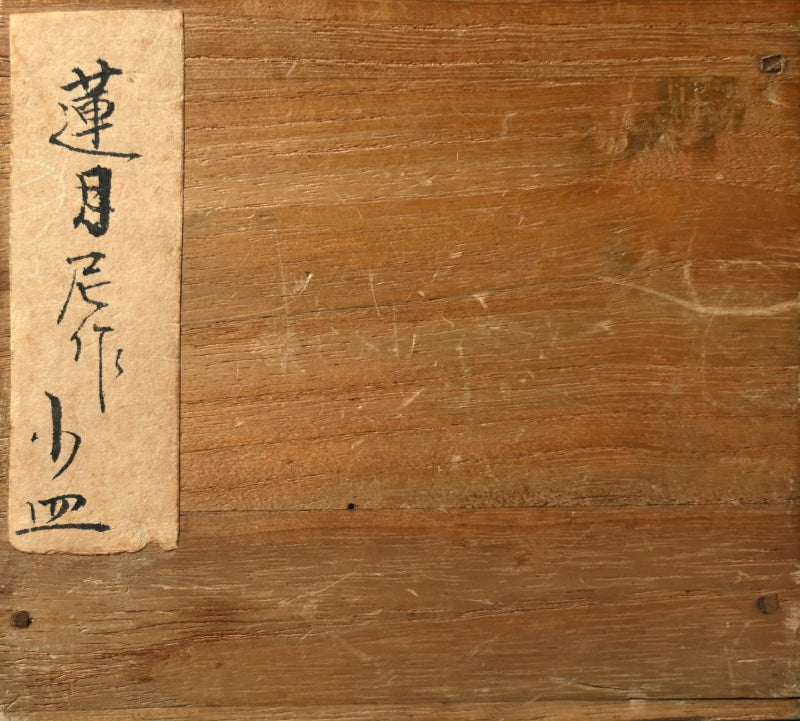 蓮月尼作小皿